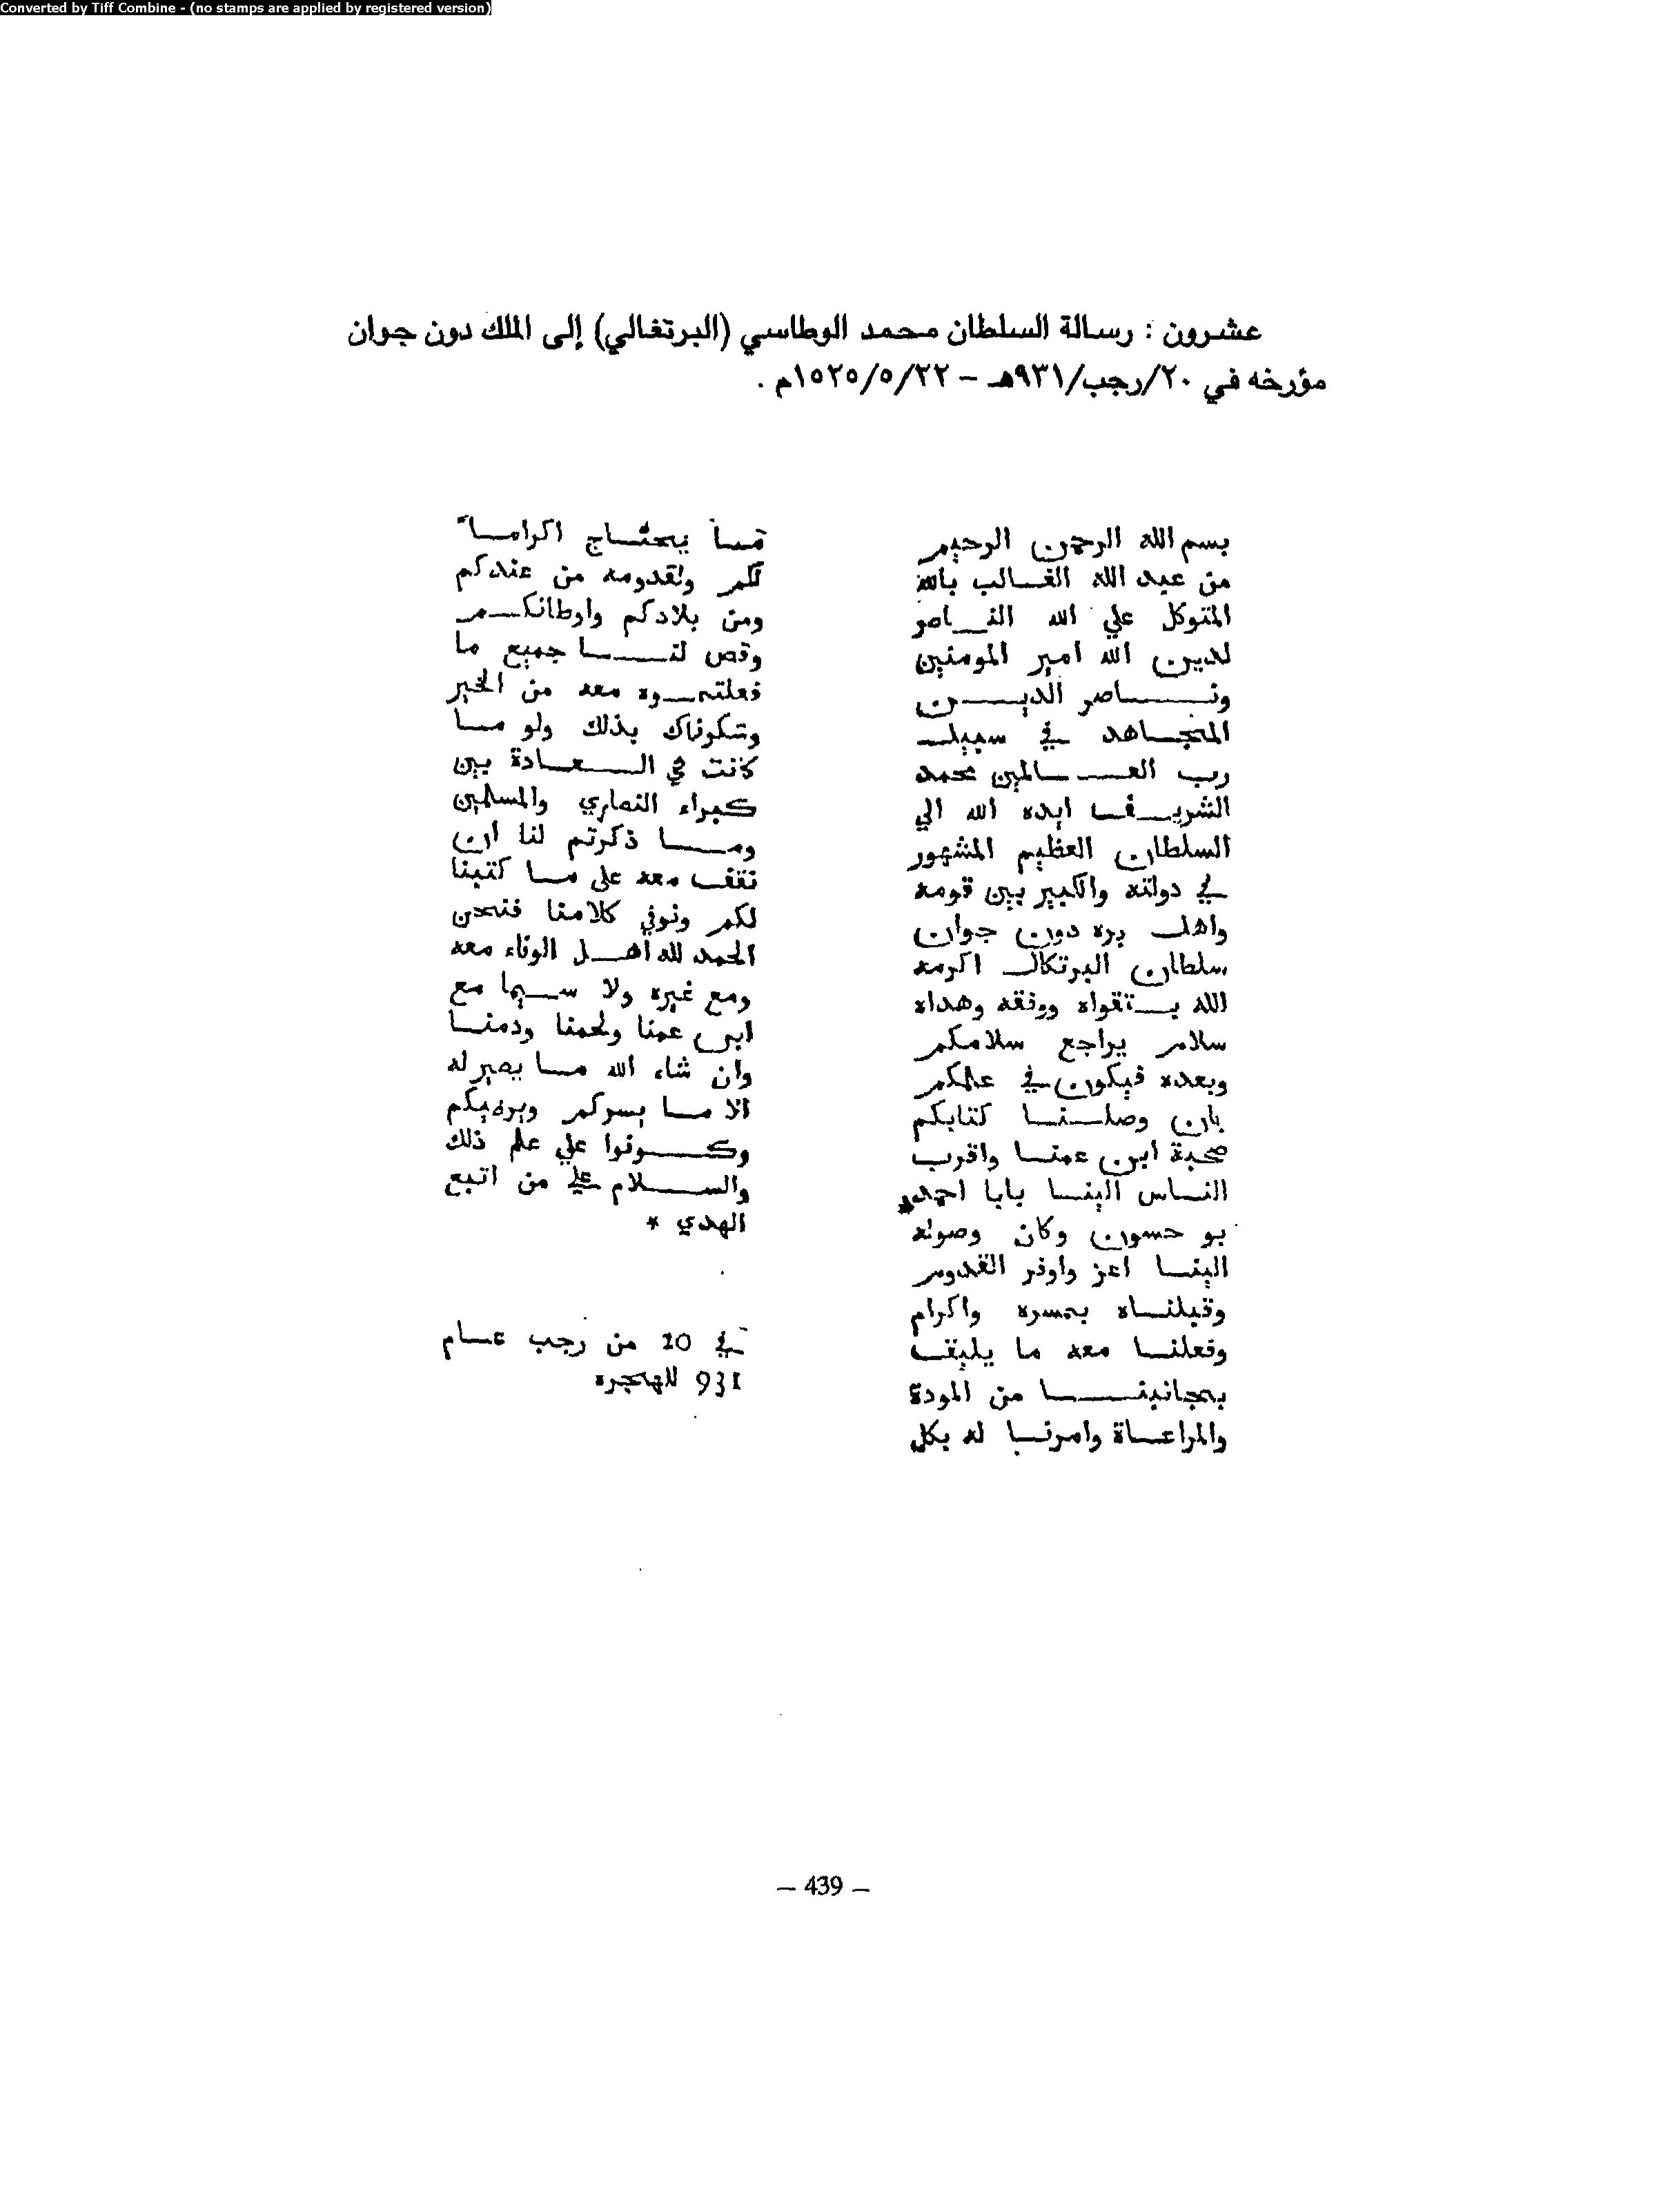 Converted by Tiff Combine - (no stamps are applied by registered version)
عشرون : رسالة السلطان محمد الوطاسي (البرتغالي) إلى الملك دون جوان
مؤرخه في ٢٠/رجب/٩٣١هـ – ١٥٢٥/٥/٢٢م .
بسم الله الرحمن الرحيم
من عبد الله الغالب بالله
المتوكل علي الله الناصر
لدين الله امير المومنين
وناصر الدين
المجاهد في سبيل
رب العالمين محمد
الشريف ايده الله الي
السلطان العظيم المشهور
في دولته والكبير بين قومه
واهل بره دون جوان
سلطان البرتكال اكرمه
الله بتقواه ووفقه وهداه
سلام يراجع سلامكم
وبعده فيكون في علمكم
بان وصلنا كتابكم
صحبة ابن عمنا واقرب
الناس الينا بابا احمد*
بو حسون وكان وصوله
الينا اعز واوفر القدوم
وقبلناه بمسره واكرام
وفعلنا معه ما يليق
بجانبنا من المودة
والمراعاة وامرنا له بكل
ما يحتاج اكراما
لكم ولقدومه من عندكم
ومن بلادكم واوطانكم
وقص لنا جميع ما
فعلتموه معه من الخير
وشكرناك بذلك ولو ما
كانت هي العادة بين
كبراء النصاري والمسلمين
وما ذكرتم لنا ان
نقف معه على ما كتبنا
لكم ونوفي كلامنا فنحن
الحمد لله اهل الوفاء معه
ومع غيره ولا سيما مع
ابن عمنا ولحمنا ودمنا
وان شاء الله ما يصير له
الا ما يسركم ويرضيكم
وكونوا علي علم ذلك
والسلام علي من اتبع
الهدي *
في 20 من رجب عام
931 للهجره
– 439 –